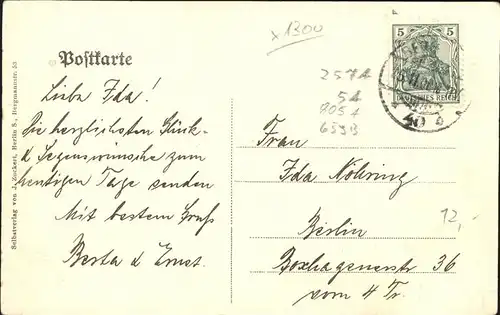 x 1300
5 5
DEUTSCHES REICH
Postkarte
2574
54
805 A
659B
Selbstverlag von J. Zockert, Berlin S., Bergmannstr. 53
Liebe Ida!
Die herzlichsten Glück-
& Segenswünsche zum
heutigen Tage senden
Mit bestem Gruß
Berta & Ernst.
Frau
Ida Nöhring
Berlin
Boxhagenerstr 36
vorn 4 Tr.
12,-